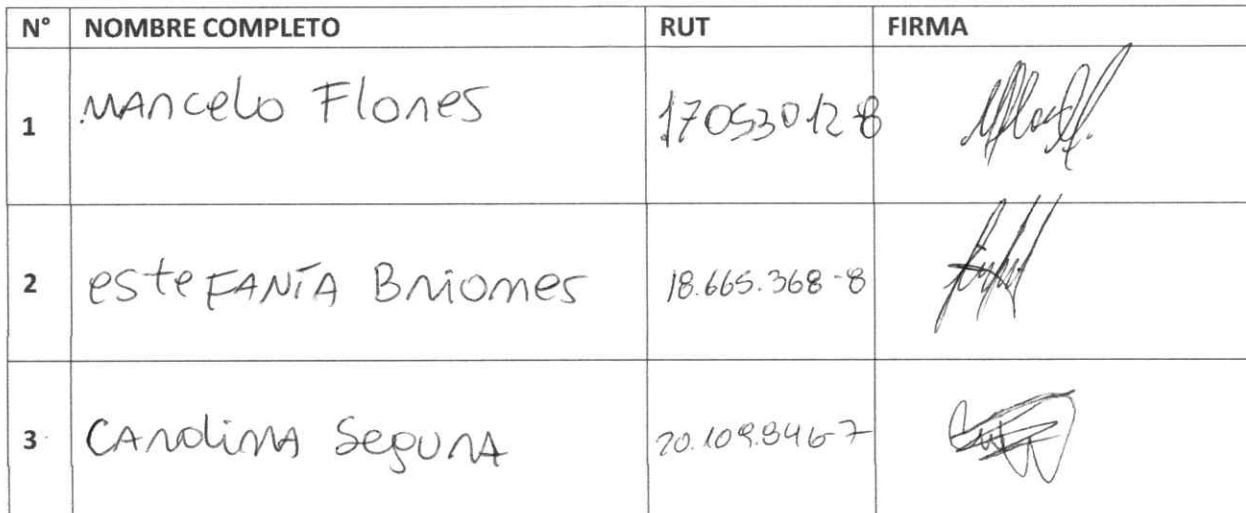 N° NOMBRE COMPLETO RUT FIRMA
1 MARcelo Flores 17053012-8
2 esteFANÍA Briones 18.665.368-8
3 CARolinA SegurA